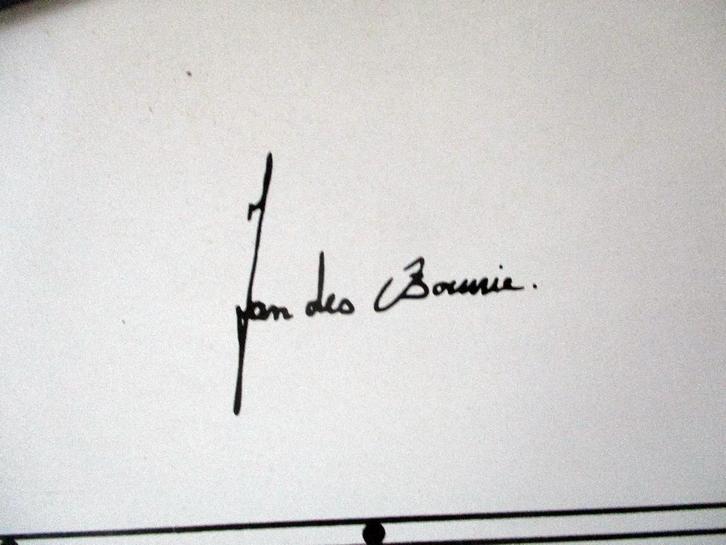 Jan des Bouvrie.